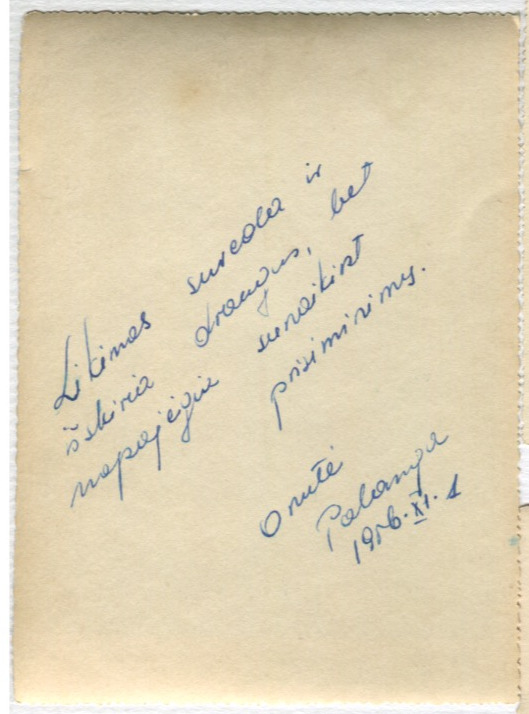 Likimas suveda ir
išskiria draugus, bet
nepajėgia sunaikint
prisiminimų.
Onutė
Palanga
1956.XI.1